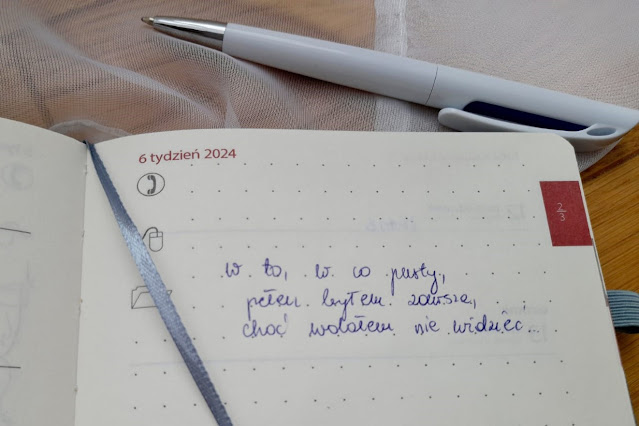 6 tydzień 2024
2
3
w to, w co pusty,
pełen byłem zawsze,
choć wolałem nie widzieć...